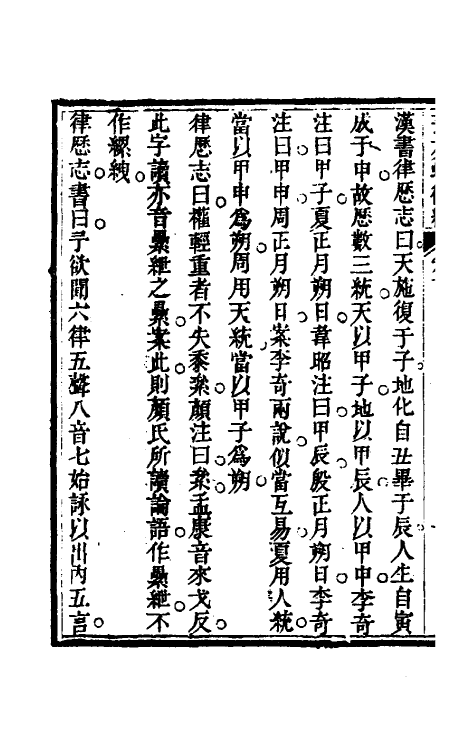 漢書律厯志曰天施復于子地化自丑畢于辰人生自寅
成于申故厯數三統天以甲子地以甲辰人以甲申李奇
注曰甲子夏正月朔日韋昭注曰甲辰殷正月朔日李奇
注曰甲申周正月朔日案李奇兩說似當互易夏用人統
當以甲申爲朔周用天統當以甲子爲朔
律厯志曰權輕重者不失黍絫顔注曰絫孟康音來戈反
此字讀亦音纍紲之纍案此則顔氏所讀論語作纍紲不
作縲絏
律厯志書曰予欲聞六律五聲八音七始詠以出內五言